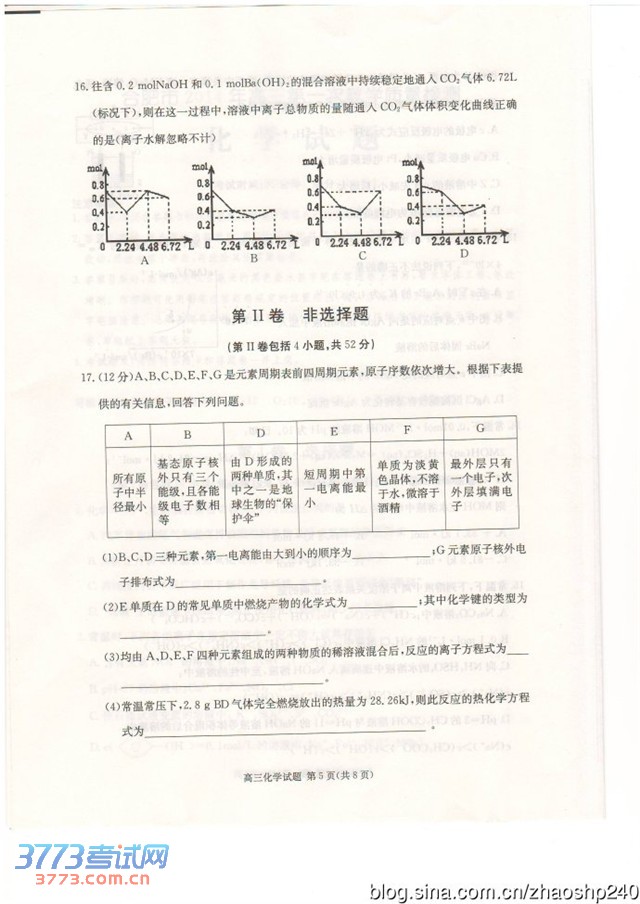 16.往含0.2 molNaOH和0.1 molBa(OH)₂的混合溶液中持续稳定地通入CO₂气体6.72L
(标况下),则在这一过程中,溶液中离子总物质的量随通入CO₂气体体积变化曲线正确
的是(离子水解忽略不计)
mol mol mol mol
0.8 0.8 0.8 0.8
0.6 0.6 0.6 0.6
0.4 0.4 0.4 0.4
0.2 0.2 0.2 0.2
0 2.24 4.48 6.72 L 0 2.24 4.48 6.72 L 0 2.24 4.48 6.72 L 0 2.24 4.48 6.72 L
A B C D
第II卷 非选择题
(第II卷包括4小题,共52分)
17.(12分)A、B、C、D、E、F、G是元素周期表前四周期元素,原子序数依次增大。根据下表提
供的有关信息,回答下列问题。
A B D E F G
所有原 基态原子核 由D形成的 短周期中第 单质为淡黄 最外层只有
子中半 外只有三个 两种单质,其 一电离能最 色晶体,不溶 一个电子,次
径最小 能级,且各能 中之一是地 小 于水,微溶于 外层填满电
级电子数相 球生物的“保 酒精 子
等 护伞”
(1)B、C、D三种元素,第一电离能由大到小的顺序为;G元素原子核外电
子排布式为。
(2)E单质在D的常见单质中燃烧产物的化学式为;其中化学键的类型为
。
(3)均由A、D、E、F四种元素组成的两种物质的稀溶液混合后,反应的离子方程式为
。
(4)常温常压下,2.8 g BD气体完全燃烧放出的热量为28.26kJ,则此反应的热化学方
程式为。
高三化学试题 第5页(共8页)
3773考试网
3773.com.cn
blog.sina.com.cn/zhaoshp240